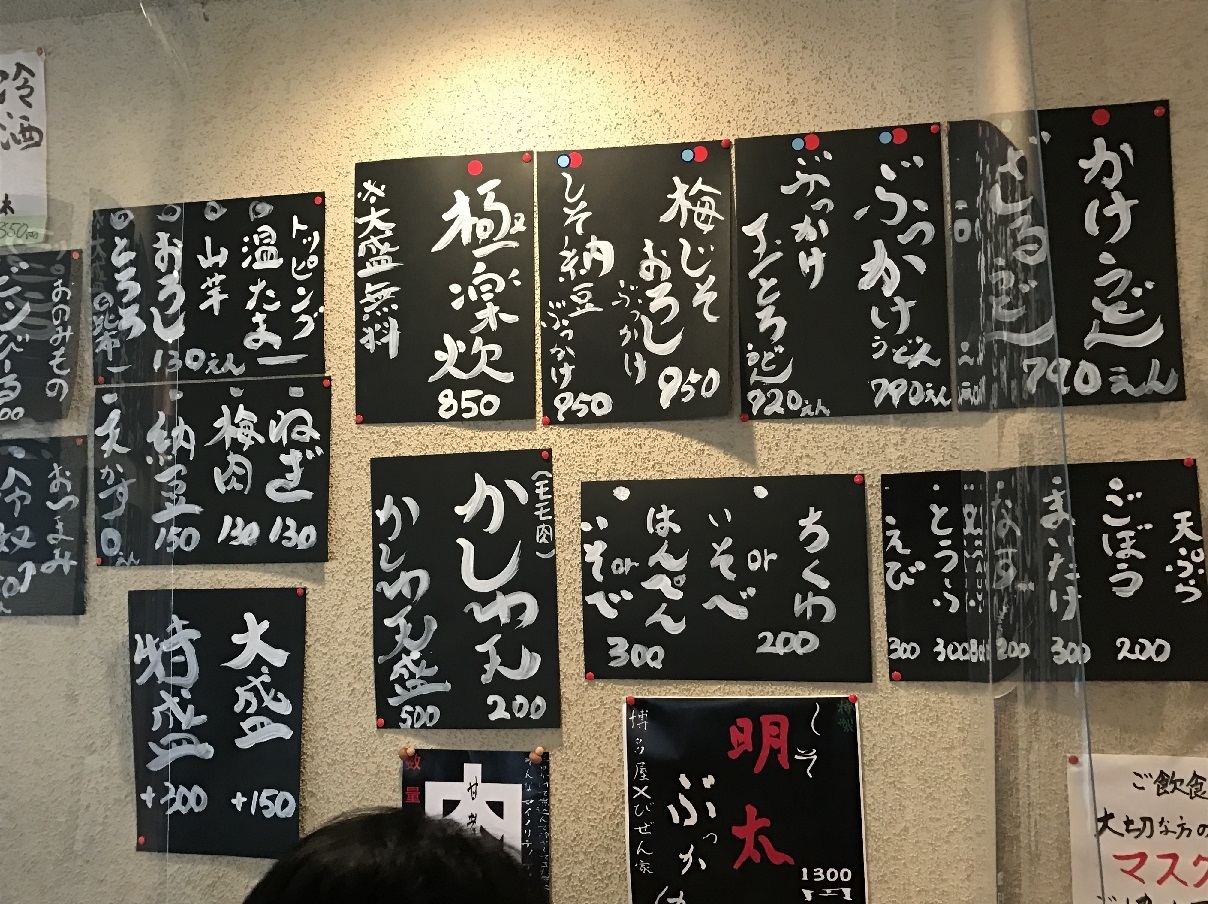 かけうどん
790えん
ざるうどん
ぶっかけ
うどん
790えん
ぶっかけ
とろろ
うどん
920えん
梅じそ
おろし
ぶっかけ
950
しそ納豆
ぶっかけ
950
極楽炊
850
※大盛無料
トッピング
温たま
山芋
おろし
130えん
とろろ
ねぎ
130
梅肉
130
納豆
150
天かす
0えん
冷酒
天ぷら
ごぼう
200
まいたけ
300
なす
200
とうもろ
300
えび
300
ちくわ
or
いそべ
200
はんぺん
or
いそべ
300
(モモ肉)
かしわ天
200
かしわ天盛
500
大盛
+150
特盛
+300
おのみもの
おつまみ
冷奴
特製
しそ
明太
ぶっか
博多屋×びぜん家
1300
円
数量
ご飲食
大切な方の
マスク